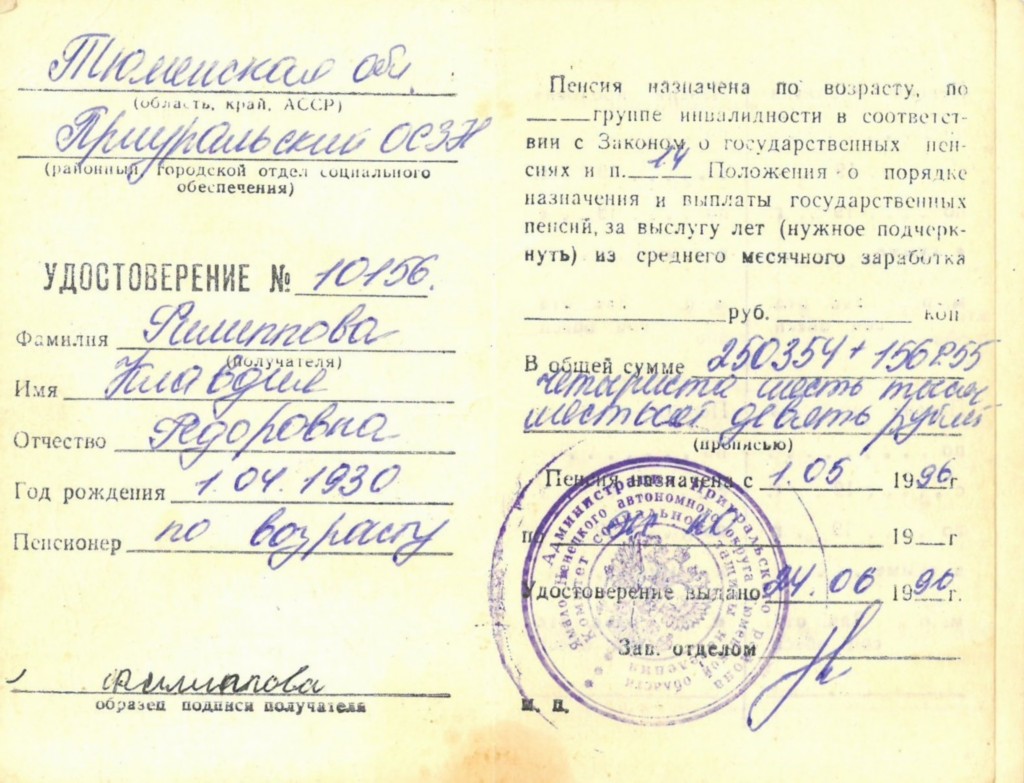 Тюменская обл.
(область, край, АССР)
Приуральский ОСЗН
(районный, городской отдел социального
обеспечения)
УДОСТОВЕРЕНИЕ № 10156.
Фамилия Филиппова
(получателя)
Имя Клавдия
Отчество Федоровна
Год рождения 1.04.1930
Пенсионер по возрасту
Филиппова
образец подписи получателя
Пенсия назначена по возрасту, по
группе инвалидности в соответст-
вии с Законом о государственных пен-
сиях и п. 14 Положения о порядке
назначения и выплаты государственных
пенсий, за выслугу лет (нужное подчерк-
нуть) из среднего месячного заработка
руб. коп
В общей сумме 250354+156255
четыриста шесть тысяч
шестьсот девять рублей
(прописью)
Пенсия назначена с 1.05 1996г
по 19 г
Удостоверение выдано 24.06 1996г.
Зав. отделом
М. П.
Администрация Приуральского района
Ямало-Ненецкого автономного округа Тюменской области
Комитет социальной защиты населения